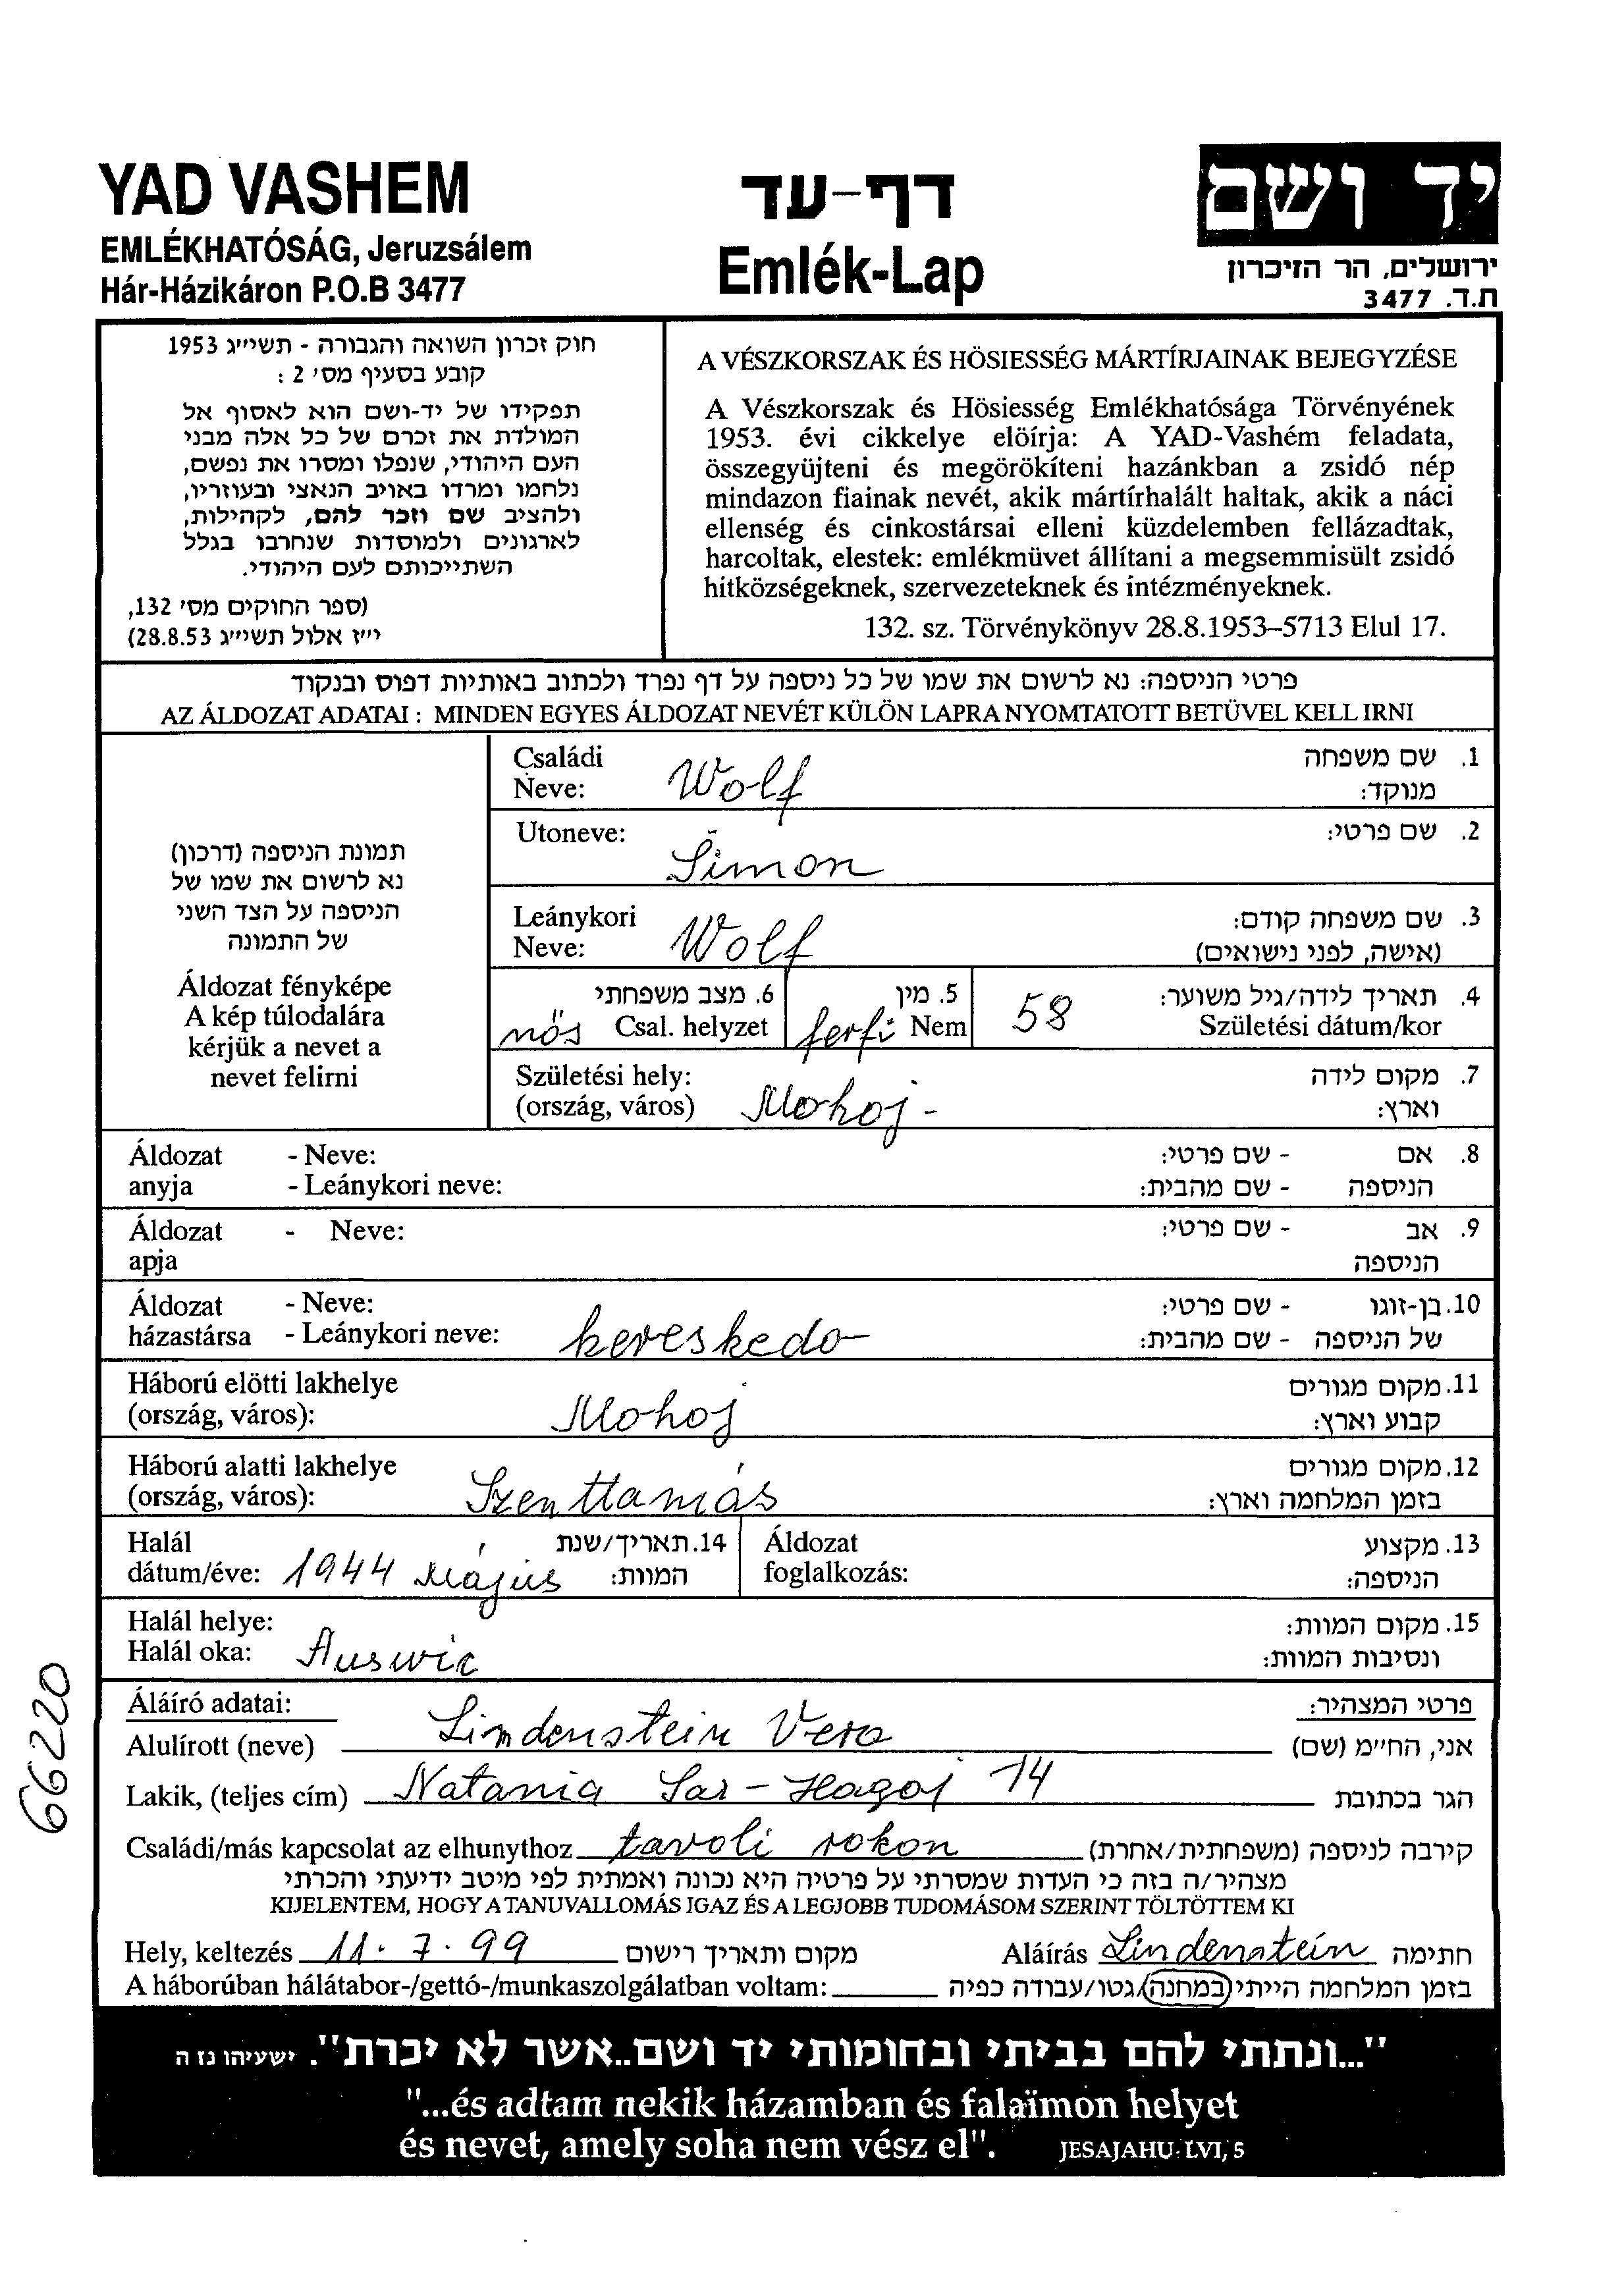 YAD VASHEM
EMLÉKHATÓSÁG, Jeruzsálem
Hár-Házikáron P.O.B 3477
דף-עד
Emlék-Lap
יד ושם
ירושלים, הר הזיכרון
ת.ד. 3477
חוק זכרון השואה והגבורה - תשי״ג 1953
קובע בסעיף מס׳ 2 :
תפקידו של יד-ושם הוא לאסוף אל
המולדת את זכרם של כל אלה מבני
העם היהודי, שנפלו ומסרו את נפשם,
נלחמו ומרדו באויב הנאצי ובעוזריו,
ולהציב שם וזכר להם, לקהילות,
לארגונים ולמוסדות שנחרבו בגלל
השתייכותם לעם היהודי.
(ספר החוקים מס׳ 132,
י״ז אלול תשי״ג 28.8.53)
A VÉSZKORSZAK ÉS HÖSIESSÉG MÁRTÍRJAINAK BEJEGYZÉSE
A Vészkorszak és Hösiesség Emlékhatósága Törvényének
1953. évi cikkelye elöírja: A YAD-Vashém feladata,
összegyüjteni és megörökíteni hazánkban a zsidó nép
mindazon fiainak nevét, akik mártírhalált haltak, akik a náci
ellenség és cinkostársai elleni küzdelemben fellázadtak,
harcoltak, elestek: emlékmüvet állítani a megsemmisült zsidó
hitközségeknek, szervezeteknek és intézményeknek.
132. sz. Törvénykönyv 28.8.1953–5713 Elul 17.
פרטי הניספה: נא לרשום את שמו של כל ניספה על דף נפרד ולכתוב באותיות דפוס ובנקוד
AZ ÁLDOZAT ADATAI : MINDEN EGYES ÁLDOZAT NEVÉT KÜLÖN LAPRA NYOMTATOTT BETÜVEL KELL IRNI
תמונת הניספה (דרכון)
נא לרשום את שמו של
הניספה על הצד השני
של התמונה
Áldozat fényképe
A kép túlodalára
kérjük a nevet a
nevet felirni
Családi Neve: Wolf 1. שם משפחה מנוקד:
Utoneve: Simon 2. שם פרטי:
Leánykori Neve: Wolf 3. שם משפחה קודם: (אישה, לפני נישואים)
nős 6. מצב משפחתי Csal. helyzet ferfi 5. מין Nem 58 4. תאריך לידה/גיל משוער: Születési dátum/kor
Születési hely: (ország, város) Mohoj - 7. מקום לידה וארץ:
Áldozat anyja - Neve: - Leánykori neve: 8. אם הניספה - שם פרטי: - שם מהבית:
Áldozat apja - Neve: 9. אב הניספה - שם פרטי:
Áldozat házastársa - Neve: - Leánykori neve: kereskedo 10. בן-זוגו של הניספה - שם פרטי: - שם מהבית:
Háború elötti lakhelye (ország, város): Mohoj 11. מקום מגורים קבוע וארץ:
Háború alatti lakhelye (ország, város): Szenttamás 12. מקום מגורים בזמן המלחמה וארץ:
Halál dátum/éve: 1944 Május 14. תאריך/שנת המוות: Áldozat foglalkozás: 13. מקצוע הניספה:
Halál helye: Halál oka: Auswic 15. מקום המוות: ונסיבות המוות:
Áláíró adatai: פרטי המצהיר:
Alulírott (neve) Lindenstein Vera אני, החי״מ (שם)
Lakik, (teljes cím) Natania Sar-Hagoj 14 הגר בכתובת
Családi/más kapcsolat az elhunythoz tavoli rokon קירבה לניספה (משפחתית/אחרת)
מצהיר/ה בזה כי העדות שמסרתי על פרטיה היא נכונה ואמתית לפי מיטב ידיעתי והכרתי
KIJELENTEM, HOGY A TANUVALLOMÁS IGAZ ÉS A LEGJOBB TUDOMÁSOM SZERINT TÖLTÖTTEM KI
Hely, keltezés 11. 7. 99 מקום ותאריך רישום Aláírás Lindenstein חתימה
A háborúban hálátabor-/gettó-/munkaszolgálatban voltam: בזמן המלחמה הייתי במחנה/גטו/עבודה כפיה
66220
"...ונתתי להם בביתי ובחומותי יד ושם..אשר לא יכרת". ישעיהו נז ה
"...és adtam nekik házamban és falaïmon helyet
és nevet, amely soha nem vész el". JESAJAHU LVI, 5